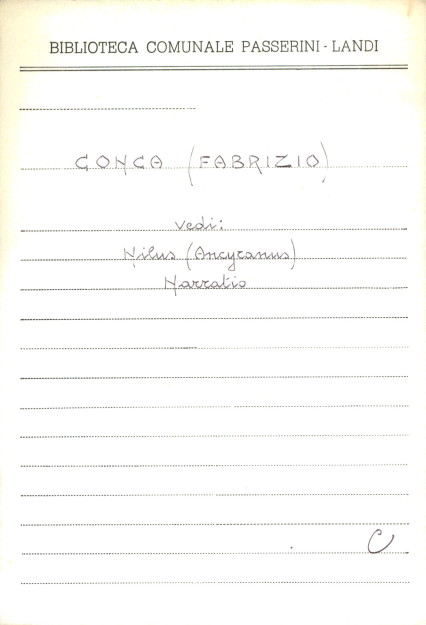 BIBLIOTECA COMUNALE PASSERINI - LANDI
CONCA (FABRIZIO)
vedi:
Nilus (Ancyranus)
Narratio
C